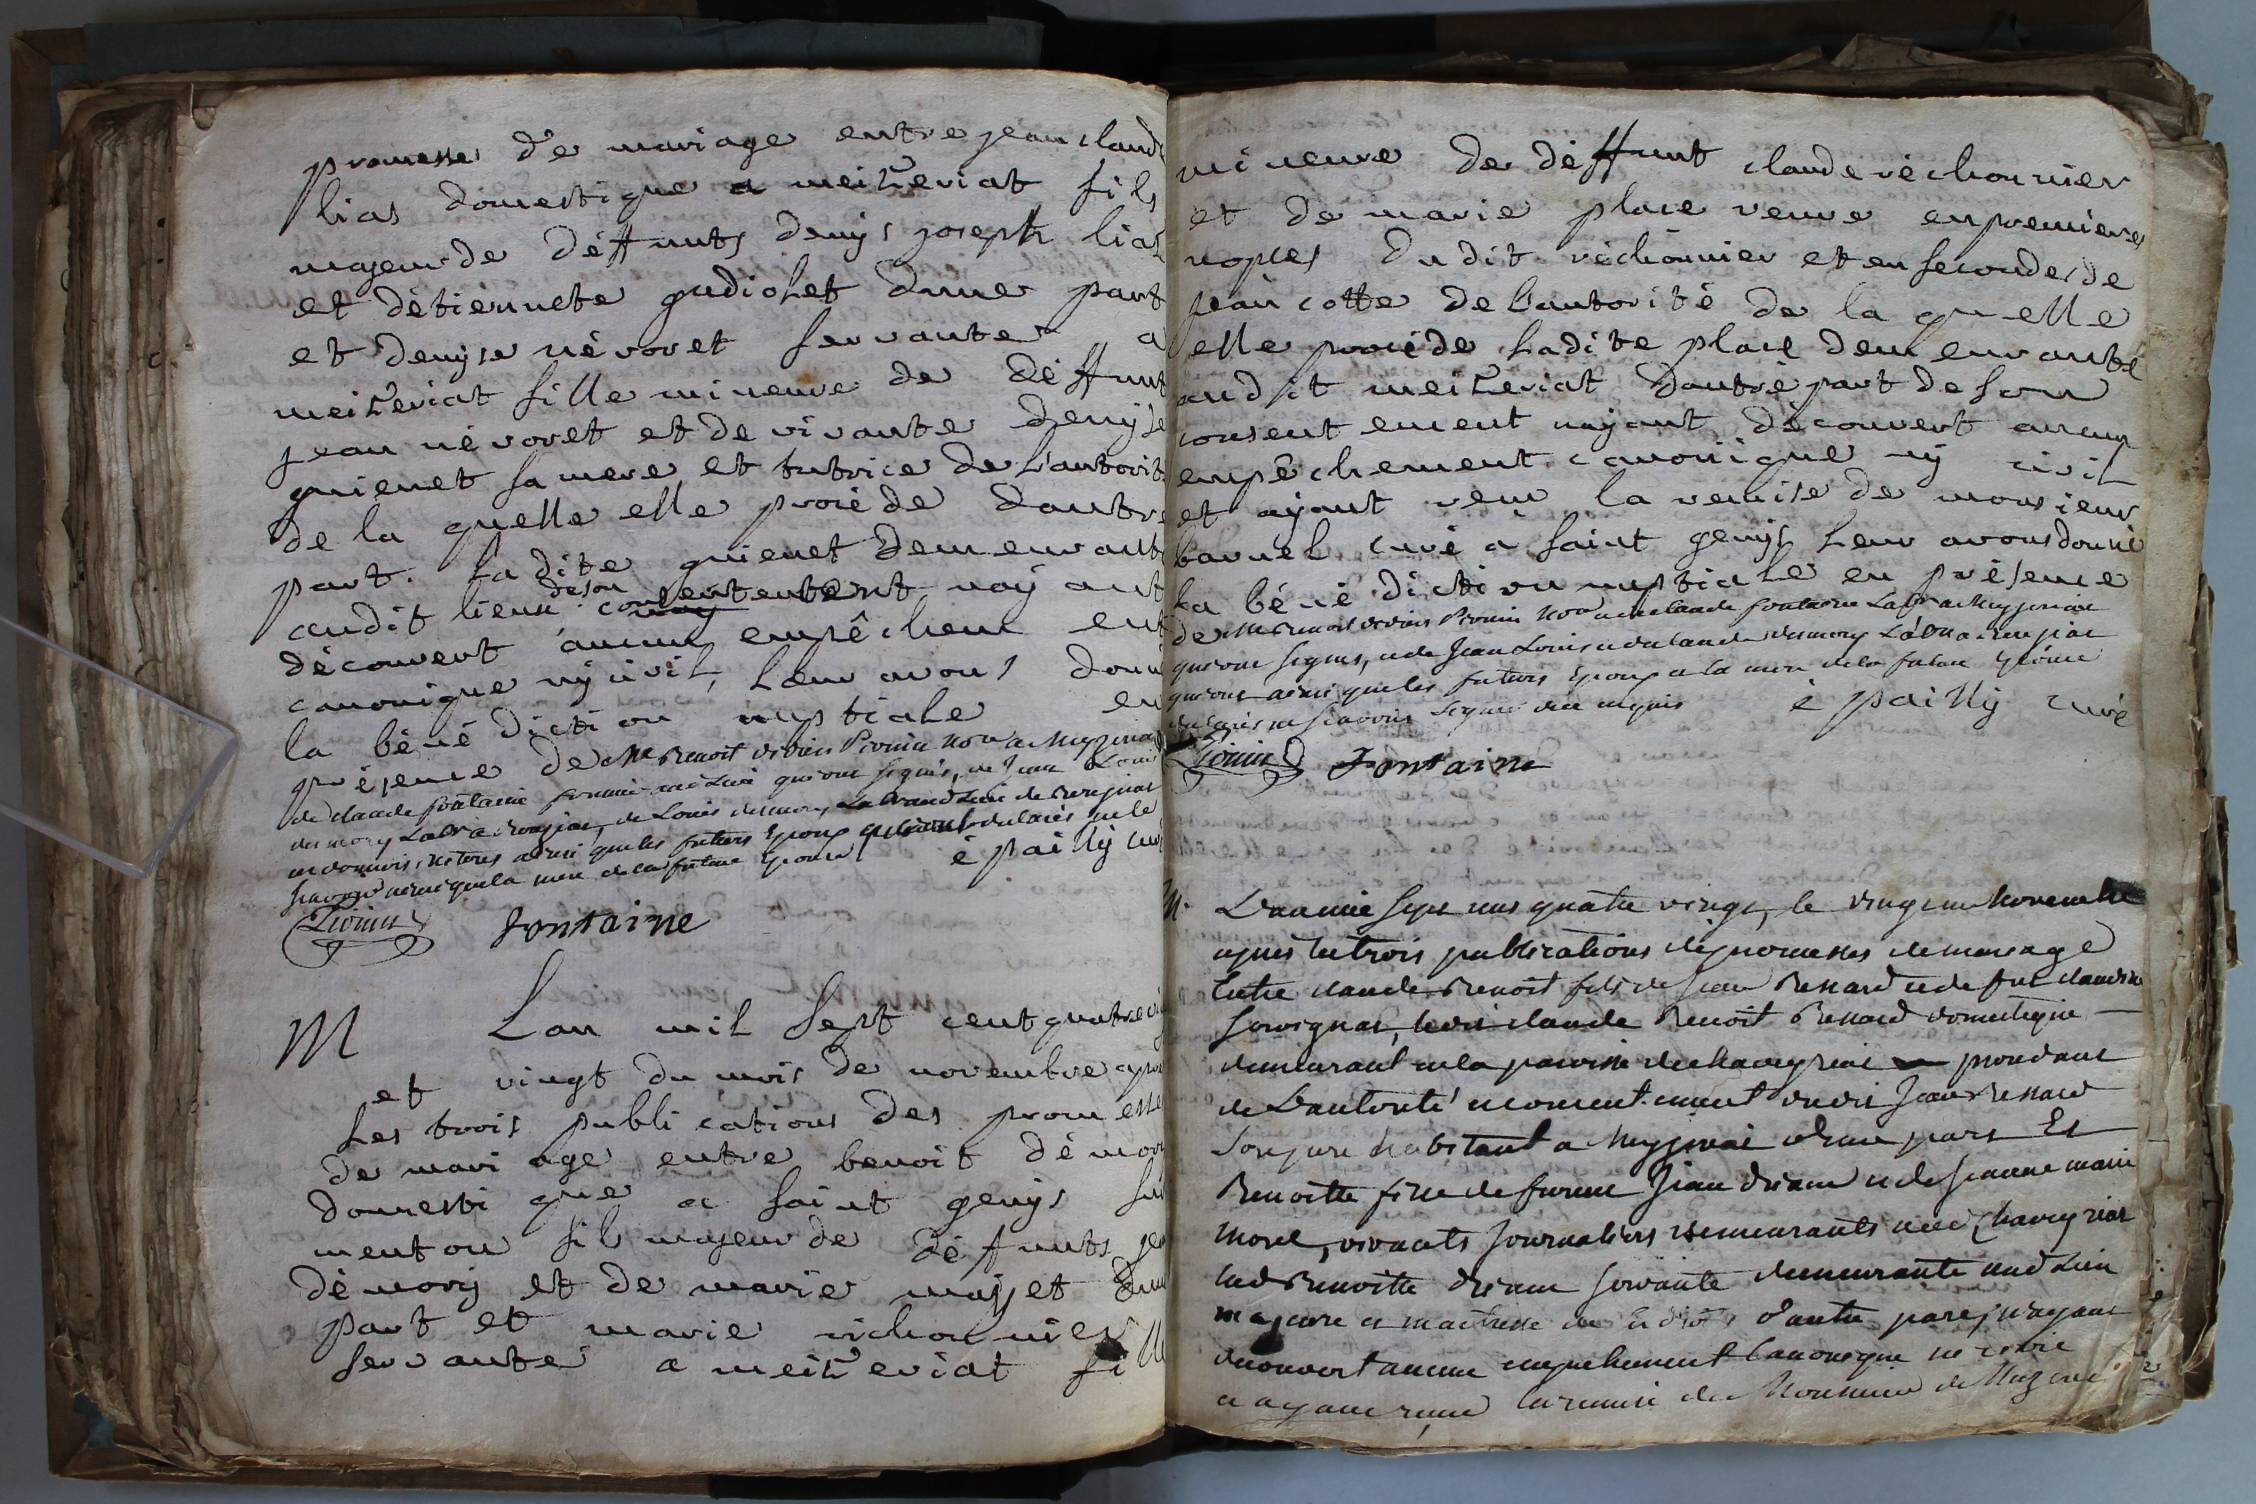 promesse de mariage entre jean claude
lias domestique a meizeriat fils
majeur de déffunts denys joseph lias
et détiennete gudiolet dune part
et denyse névoret servante a
meizeriat fille mineure de déffunt
jean névoret et de vivante denyse
guienet sa mere et tutrice de l'autorité
de la quelle elle procéde dautre
part. ladite guienet demeurante
audit lieu de son consentement nayant
découvert aucun empêchement
canonique ny civil, leur avons donné
la bénédiction nuptiale en
présence de Me Benoit
de claude fontaine qui ont signés, de Jean Louis
de Louis
ainsi que les futurs Epoux
ainsi que la mere de la future Epouse é pailly curé
fontaine
M Lan mil sept cent quatrevingt
et vingt du mois de novembre apres
les trois publications des promesses
de mariage entre benoit démory
domestique a saint genys sur
menton fils majeur de déffunts jean
démory et de marie majet dune
part et marie réchonnier
servante a meizeriat fille
mineure de déffunt claude réchonnier
et de marie place veuve en premieres
nopces dudit réchonnier et en secondes de
jean cotte de l'autorité de la quelle
elle procéde ladite place demeurante
audit meizeriat dautre part de son
consentement nayant découvert aucun
empêchement canonique ny civil
et ayant veu la remise de monsieur
baruel curé a saint genys leur avons donné
la bénédiction nuptiale en présence
de Me Benoit et de claude fontaine
qui ont signés, et de Jean Louis et de claude
qui ont ainsi que les futurs Epoux et la mere de la future Epouse
déclarés ne scavoir signer de ce requis é pailly curé
fontaine
M. L'an mil sept cens quatre vingt, le vingt un Novembre
apres les trois publications des promesses de mariage
Entre claude Benoit fils de Jean Renard et de fut claudine
claude Benoit Renard domestique
demeurant en la paroisse de chaveyriat procedant
de L'autorité et consentement dudit Jean Renard
son pere habitant a d'une part Et
Benoitte fille de furent Jean et de Jeanne marie
morel, vivants Journaliers demeurants audit Chaveyriat
lad Benoitte servante demeurante aud Lieu
majeure et maitresse de ses droits d'autre part, n'ayant
decouvert aucun empechement Canonique ni civil
et ayant reçue la remise de Monsieur